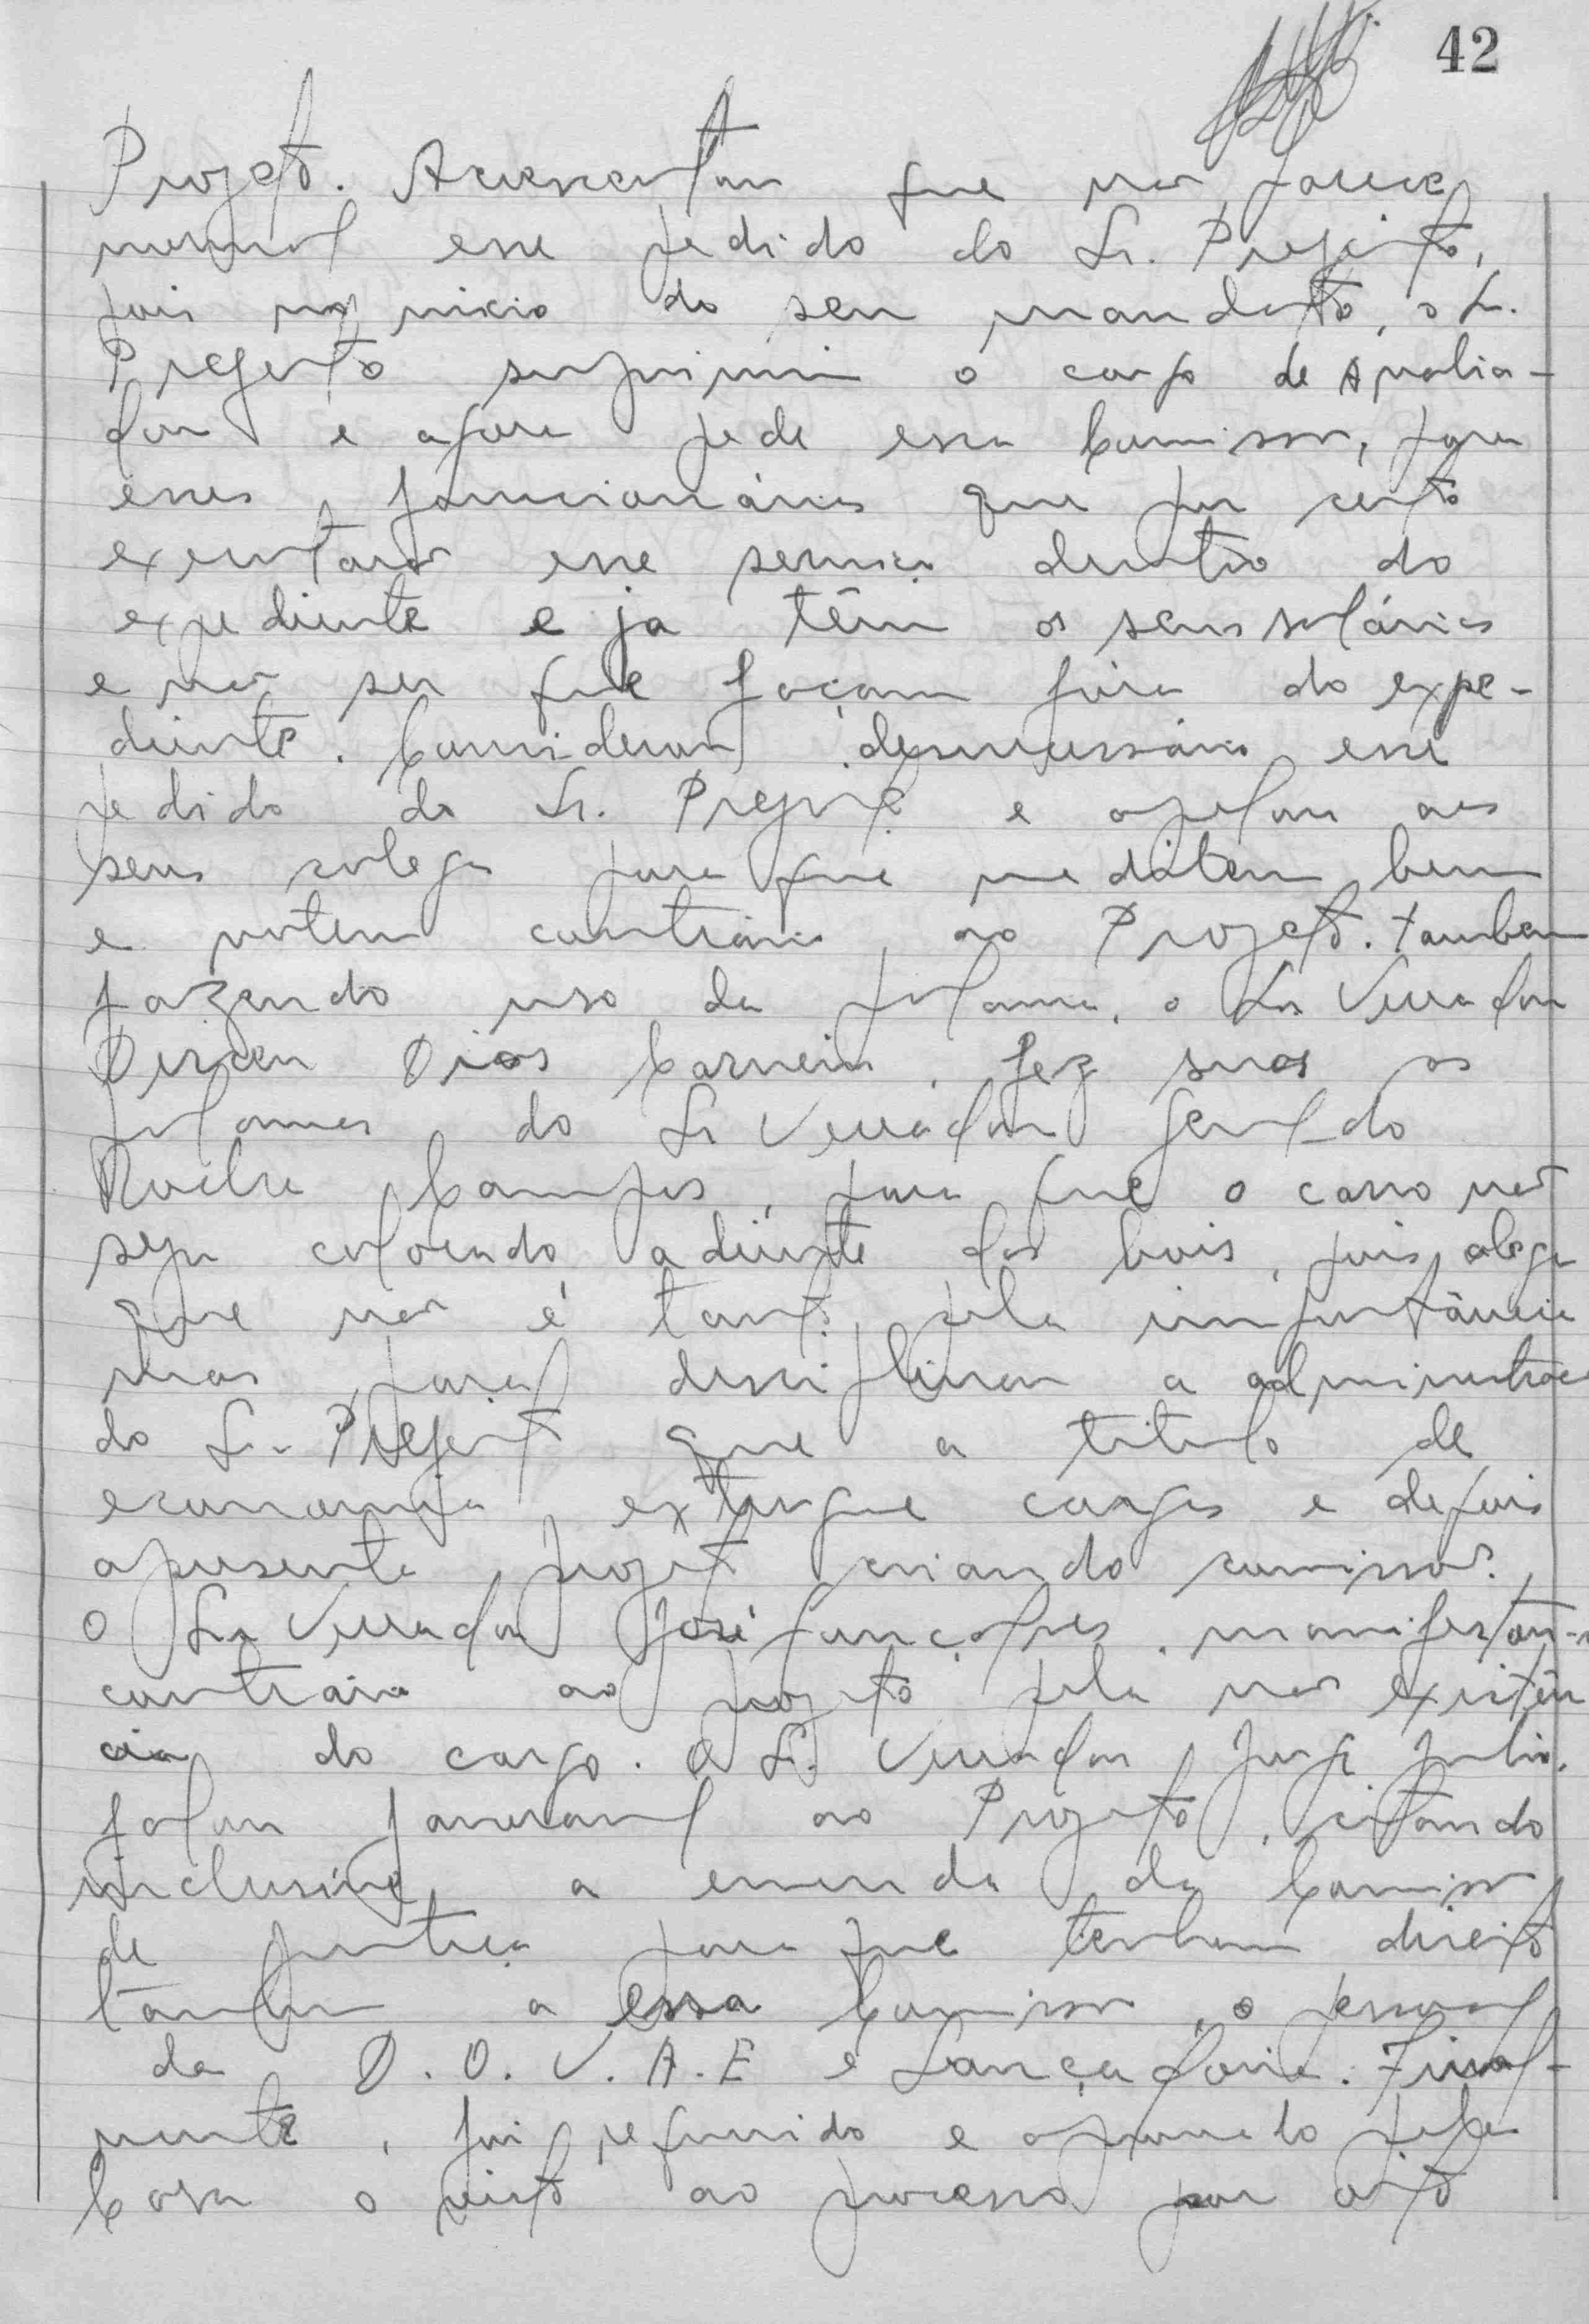 42
Projeto. Acrescentou que não parece
normal esse pedido do Sr. Prefeito,
pois no inicio do seu mandato, o Sr.
Prefeito suprimiu o cargo de Avalia-
dor e agora pede essa Comissão, para
esses funcionários que por certo
executarão esse serviço dentro do
expediente e ja têm os seus salários
e não ser que façam fora do expe-
diente. Considerou desnecessário esse
pedido do Sr. Prefeito e apelou aos
seus colegas para que meditem bem
e votem contrário ao Projeto. Tambem
fazendo uso da palavra, o Sr. Vereador
Dirceu Dias Carneiro, fez suas as
palavras do Sr Vereador Geraldo
Rocha Campos, para que o carro não
seja colocado adiante dos bois, pois alega
que não é tanto pela importância
mas para disciplinar a administração
do Sr. Prefeito que a titulo de
economia extingue cargos e depois
apresenta projeto criando comissão.
O Sr. Vereador José Gonçalves, manifestou-se
contrário ao projeto pela não existên
cia do cargo. O Sr. Vereador Jorge Julio,
falou favoravel ao Projeto, citando
inclusive, a emenda da Comissão
de Justiça para que tenham direito
também a essa Comissão, o pessoal
da D.O.V.A.E e Lançadoria. Final-
mente, foi requerido e aprovado pela
Casa o visto ao processo por oito